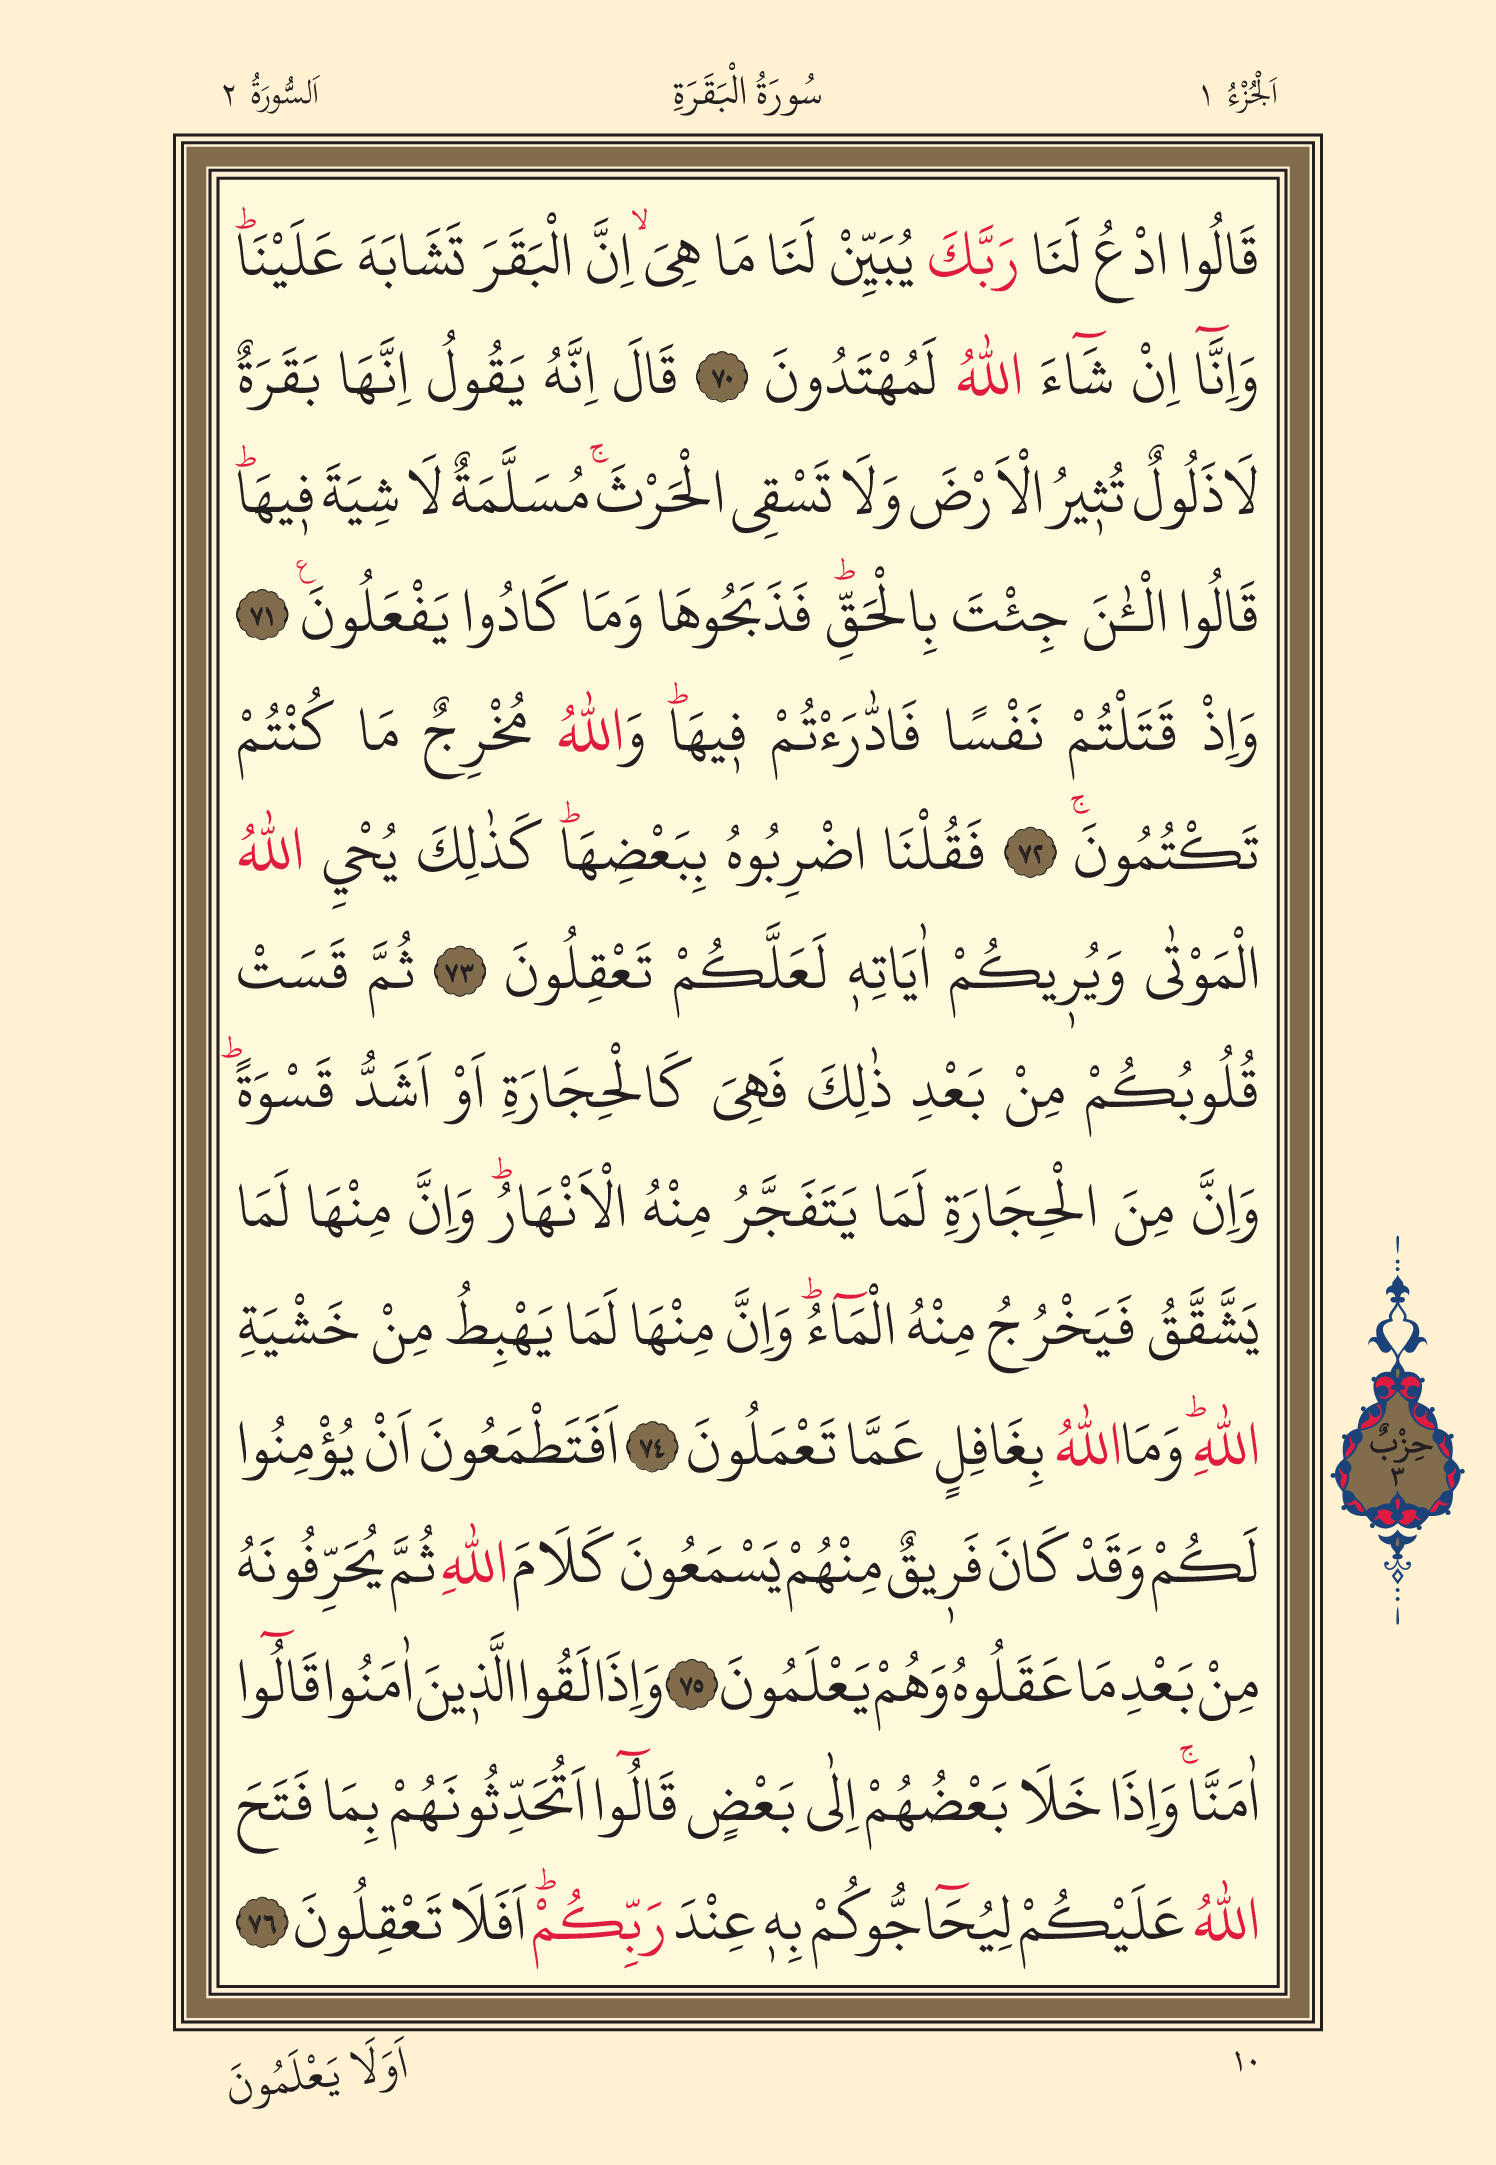 اَلْجُزْءُ ١
سُورَةُ الْبَقَرَةِ
اَلسُّورَةُ ٢
قَالُوا ادْعُ لَنَا رَبَّكَ يُبَيِّنْ لَنَا مَا هِىَۙ اِنَّ الْبَقَرَ تَشَابَهَ عَلَيْنَاۜ
وَاِنَّٓا اِنْ شَٓاءَ اللّٰهُ لَمُهْتَدُونَ ٧٠ قَالَ اِنَّهُ يَقُولُ اِنَّهَا بَقَرَةٌ
لَا ذَلُولٌ تُثٖيرُ الْاَرْضَ وَلَا تَسْقِى الْحَرْثَۚ مُسَلَّمَةٌ لَا شِيَةَ فٖيهَاؕ
قَالُوا الْـٰٔنَ جِئْتَ بِالْحَقِّؕ فَذَبَحُوهَا وَمَا كَادُوا يَفْعَلُونَࣖ ٧١
وَاِذْ قَتَلْتُمْ نَفْسًا فَادّٰرَءْتُمْ فٖيهَاؕ وَاللّٰهُ مُخْرِجٌ مَا كُنْتُمْ
تَكْتُمُونَۚ ٧٢ فَقُلْنَا اضْرِبُوهُ بِبَعْضِهَاؕ كَذٰلِكَ يُحْيِ اللّٰهُ
الْمَوْتٰى وَيُرٖيكُمْ اٰيَاتِهٖ لَعَلَّكُمْ تَعْقِلُونَ ٧٣ ثُمَّ قَسَتْ
قُلُوبُكُمْ مِنْ بَعْدِ ذٰلِكَ فَهِىَ كَالْحِجَارَةِ اَوْ اَشَدُّ قَسْوَةًؕ
وَاِنَّ مِنَ الْحِجَارَةِ لَمَا يَتَفَجَّرُ مِنْهُ الْاَنْهَارُؕ وَاِنَّ مِنْهَا لَمَا
يَشَّقَّقُ فَيَخْرُجُ مِنْهُ الْمَٓاءُؕ وَاِنَّ مِنْهَا لَمَا يَهْبِطُ مِنْ خَشْيَةِ
اللّٰهِؕ وَمَا اللّٰهُ بِغَافِلٍ عَمَّا تَعْمَلُونَ ٧٤ اَفَتَطْمَعُونَ اَنْ يُؤْمِنُوا
لَكُمْ وَقَدْ كَانَ فَرٖيقٌ مِنْهُمْ يَسْمَعُونَ كَلَامَ اللّٰهِ ثُمَّ يُحَرِّفُونَهُ
مِنْ بَعْدِ مَا عَقَلُوهُ وَهُمْ يَعْلَمُونَ ٧٥ وَاِذَا لَقُوا الَّذٖينَ اٰمَنُوا قَالُٓوا
اٰمَنَّاۚ وَاِذَا خَلَا بَعْضُهُمْ اِلٰى بَعْضٍ قَالُٓوا اَتُحَدِّثُونَهُمْ بِمَا فَتَحَ
اللّٰهُ عَلَيْكُمْ لِيُحَٓاجُّوكُمْ بِهٖ عِنْدَ رَبِّكُمْؕ اَفَلَا تَعْقِلُونَ ٧٦
حِزْبٌ
٣
١٠
اَوَلَا يَعْلَمُونَ